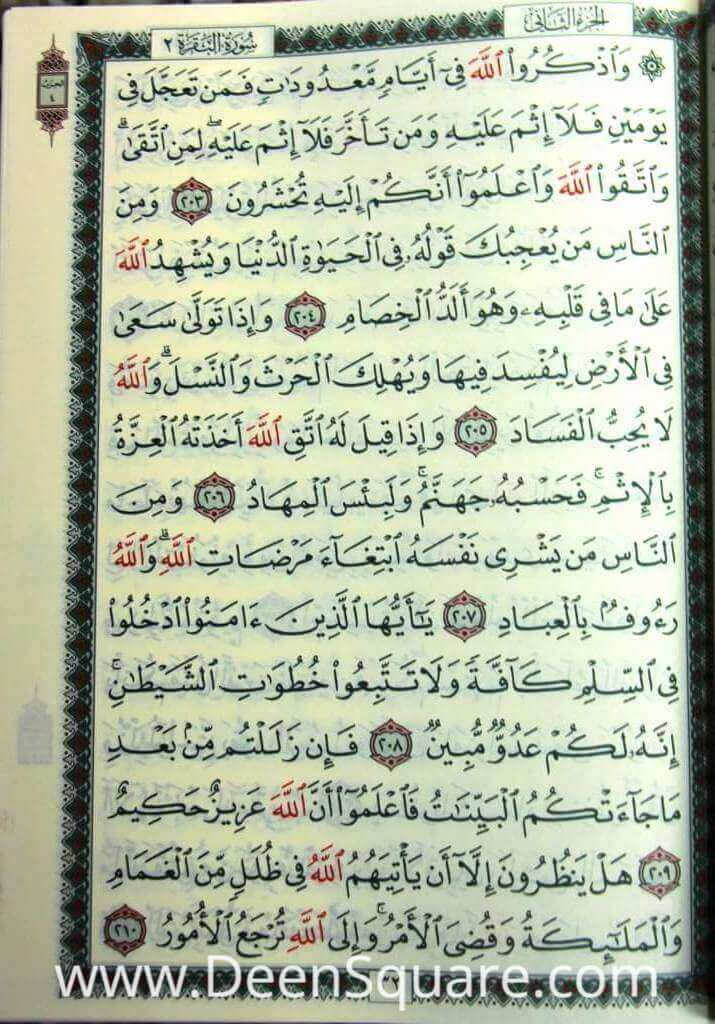 الجزء الثاني
سورة البقرة ٢
الحزب ٤
۞ وَاذْكُرُوا۟ اللَّهَ فِىٓ أَيَّامٍ مَّعْدُودَٰتٍ فَمَن تَعَجَّلَ فِى
يَوْمَيْنِ فَلَآ إِثْمَ عَلَيْهِ وَمَن تَأَخَّرَ فَلَآ إِثْمَ عَلَيْهِ ۖ لِمَنِ اتَّقَىٰ ۗ
وَاتَّقُوا۟ اللَّهَ وَاعْلَمُوٓا۟ أَنَّكُمْ إِلَيْهِ تُحْشَرُونَ ٢٠٣ وَمِنَ
النَّاسِ مَن يُعْجِبُكَ قَوْلُهُۥ فِى الْحَيَوٰةِ الدُّنْيَا وَيُشْهِدُ اللَّهَ
عَلَىٰ مَا فِى قَلْبِهِۦ وَهُوَ أَلَدُّ الْخِصَامِ ٢٠٤ وَإِذَا تَوَلَّىٰ سَعَىٰ
فِى الْأَرْضِ لِيُفْسِدَ فِيهَا وَيُهْلِكَ الْحَرْثَ وَالنَّسْلَ ۗ وَاللَّهُ
لَا يُحِبُّ الْفَسَادَ ٢٠٥ وَإِذَا قِيلَ لَهُ اتَّقِ اللَّهَ أَخَذَتْهُ الْعِزَّةُ
بِالْإِثْمِ ۚ فَحَسْبُهُۥ جَهَنَّمُ ۚ وَلَبِئْسَ الْمِهَادُ ٢٠٦ وَمِنَ
النَّاسِ مَن يَشْرِى نَفْسَهُ ابْتِغَآءَ مَرْضَاتِ اللَّهِ ۗ وَاللَّهُ
رَءُوفٌۢ بِالْعِبَادِ ٢٠٧ يَٰٓأَيُّهَا الَّذِينَ ءَامَنُوا۟ ادْخُلُوا۟
فِى السِّلْمِ كَآفَّةً وَلَا تَتَّبِعُوا۟ خُطُوَٰتِ الشَّيْطَٰنِ ۚ
إِنَّهُۥ لَكُمْ عَدُوٌّ مُّبِينٌ ٢٠٨ فَإِن زَلَلْتُم مِّنۢ بَعْدِ
مَا جَآءَتْكُمُ الْبَيِّنَٰتُ فَاعْلَمُوٓا۟ أَنَّ اللَّهَ عَزِيزٌ حَكِيمٌ
٢٠٩ هَلْ يَنظُرُونَ إِلَّآ أَن يَأْتِيَهُمُ اللَّهُ فِى ظُلَلٍ مِّنَ الْغَمَامِ
وَالْمَلَٰٓئِكَةُ وَقُضِىَ الْأَمْرُ ۚ وَإِلَى اللَّهِ تُرْجَعُ الْأُمُورُ ٢١٠
www.DeenSquare.com